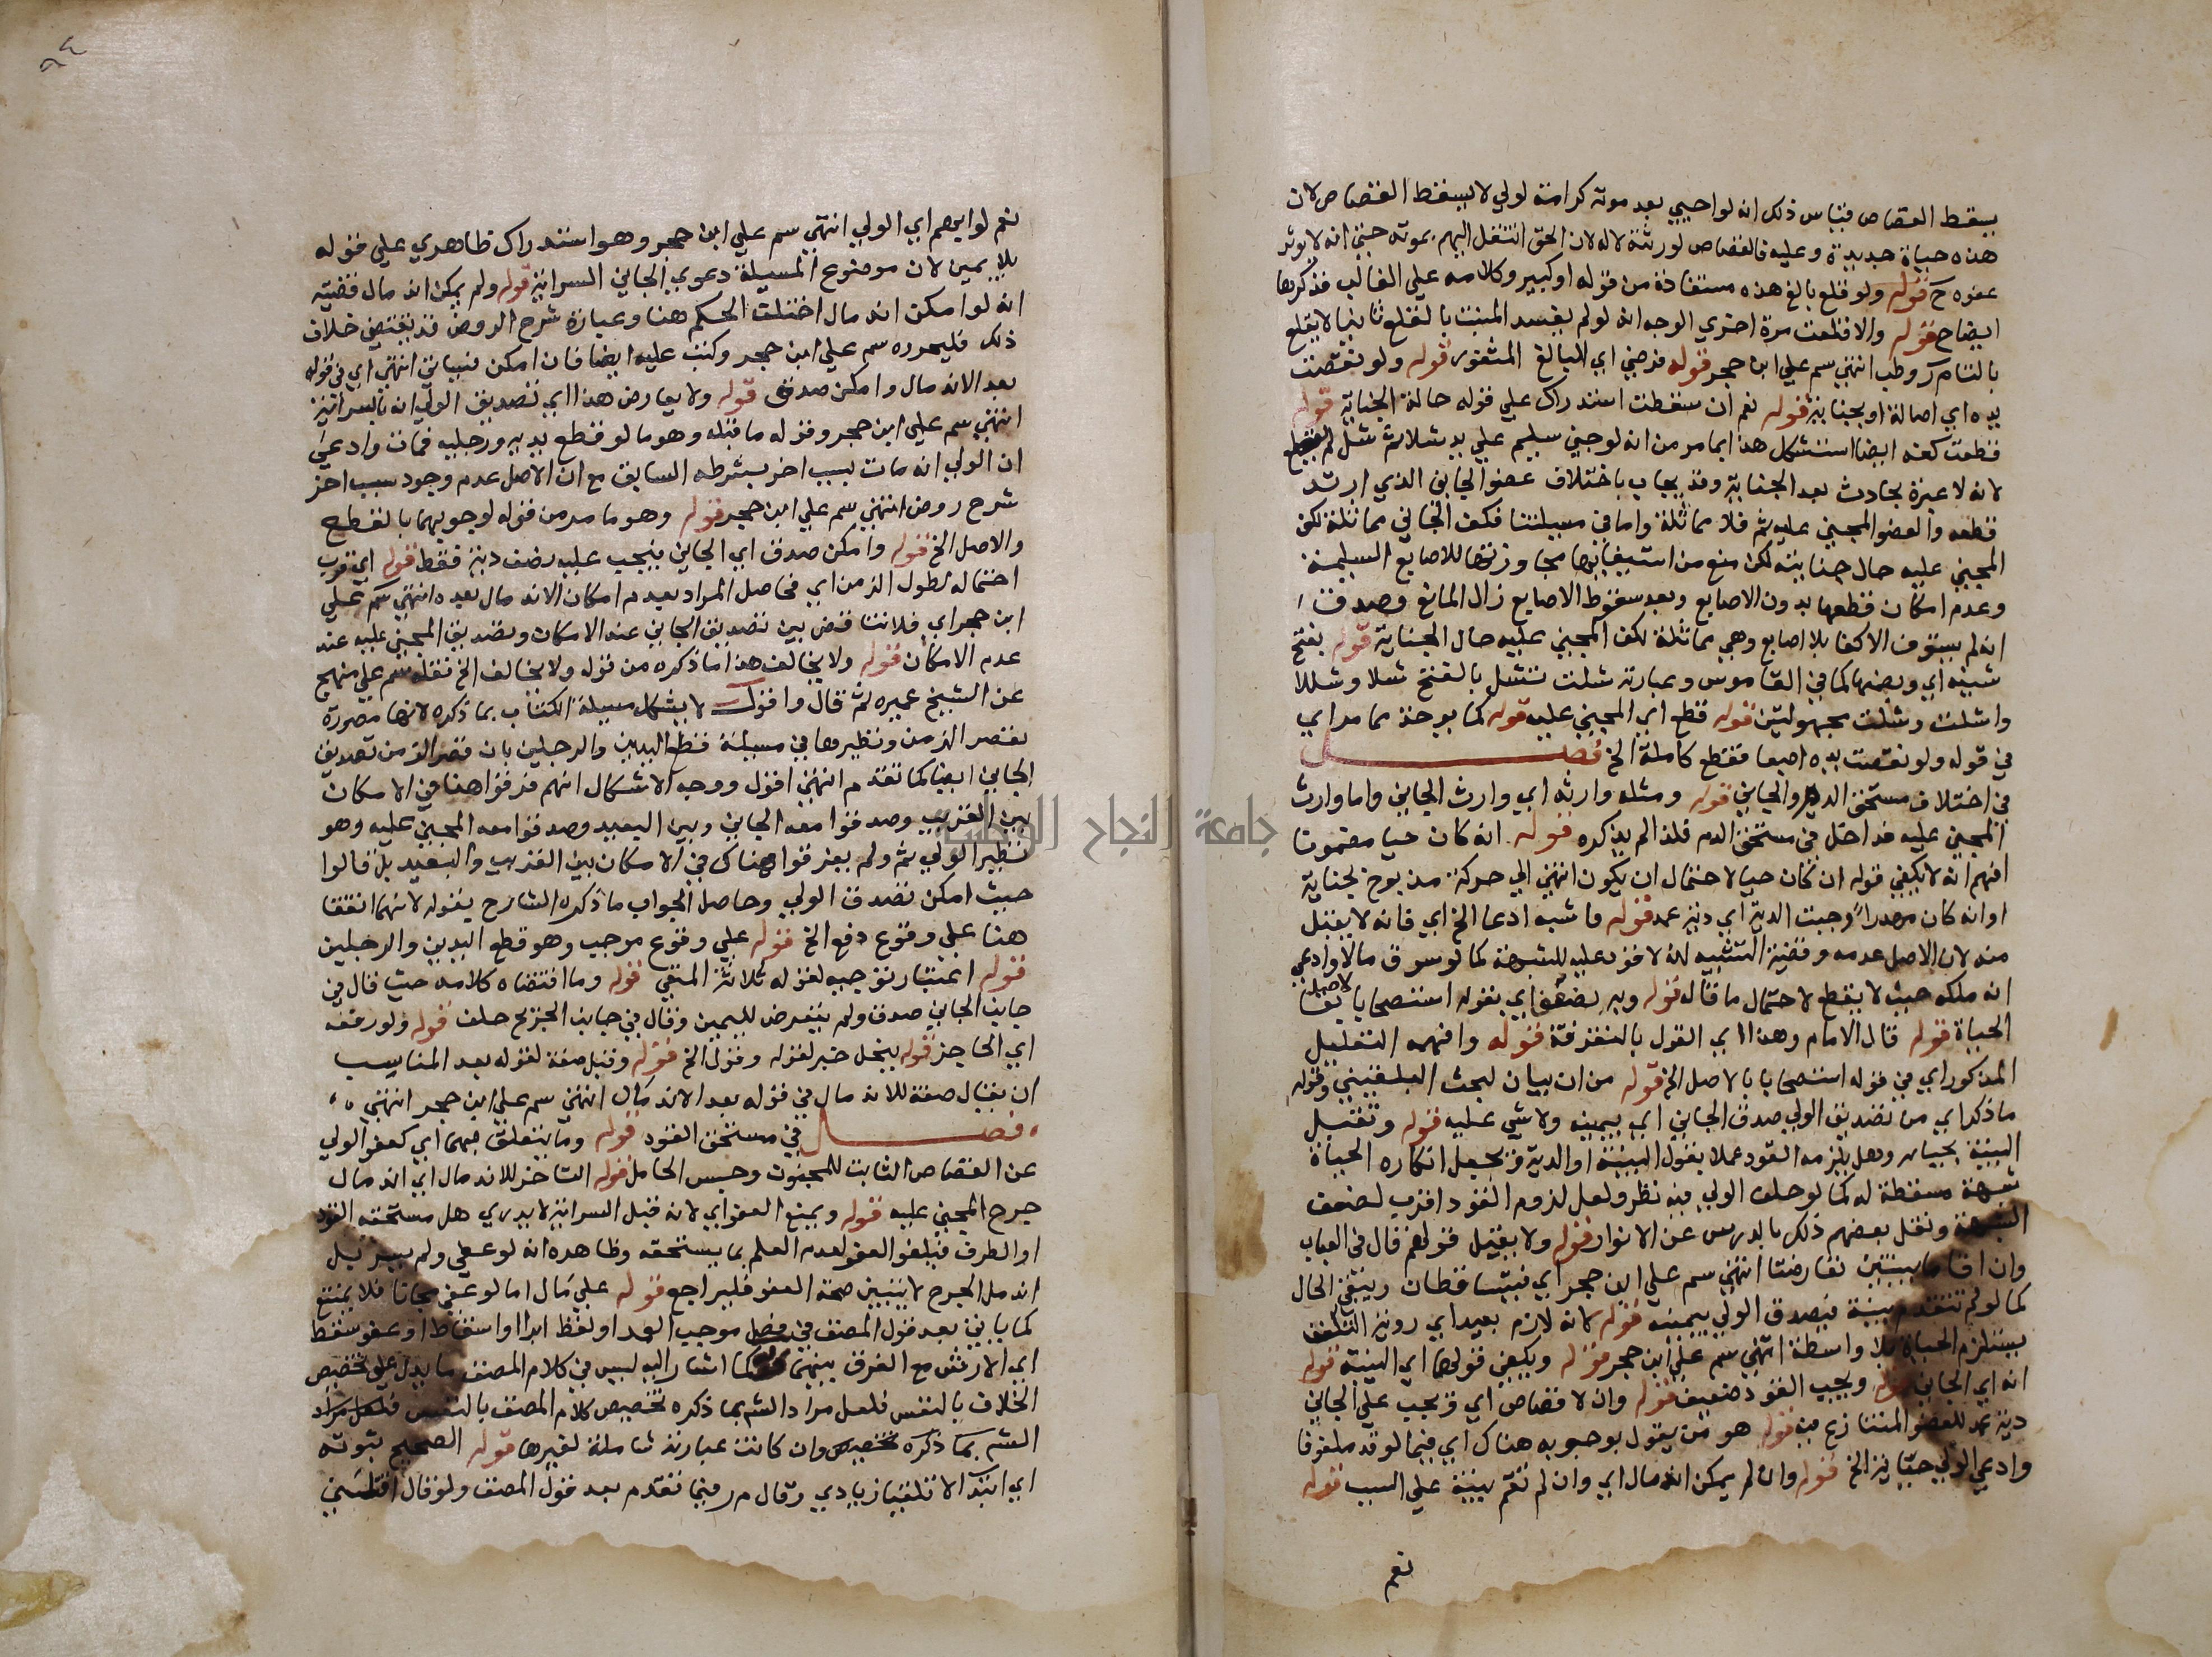 يسقط القصاص فقياس ذلك انه لو احيي بعد موته كرامة لولي لا يسقط القصاص لان
هذه حياة جديدة وعليه فالقصاص لورثته لا له لان الحق انتقل اليهم بموته حتى انه لا يوثر
عفوه ح قوله ولو قلع بالغ هذه مستفادة من قوله او كبير وكلامه علي الغالب فذكرها
ايضاح قوله والا قلعت مرة اخري الوجه انه لو لم يفسد المنبت بالقلع ثانيا لا يقلع
بالتام م ر وطب انتهي سم علي ابن حجر قوله فرضي اي البالغ المثغور قوله ولو نقصت
يده اي اصالة او بجناية قوله نعم ان سقطت استدراك علي قوله حالة الجناية قوله
قطعت كفه ايضا استشكل هذا بما مر من انه لو جني سليم علي يد شلا ثم شل لم يقطع
لانه لا عبرة بحادث بعد الجناية وقد يجاب باختلاف عضو الجاني الذي اريد
قطعه والعضو المجني عليه ثم فلا مماثلة واما في مسيلتنا فكف الجاني مماثلة لكف
المجني عليه حال جنايته لكن منع من استيفائها مجاوزتها للاصابع السليمة
وعدم امكان قطعها بدون الاصابع وبعد سقوط الاصابع زال المانع وصدق
انه لم يستوف الا كفا بلا اصابع وهي مماثلة لكف المجني عليه حال الجناية قوله بفتح
شينه اي وبضمها كما في القاموس وعبارته شلت تشل بالفتح شلا وشللا
واشلت وشلت مجهولتين قوله قطع اي المجني عليه قوله كما يوخذ مما مر اي
في قوله ولو نقصت يده اصبعا فقطع كاملة الخ فصل
في اختلاف مستحق الدم والجاني قوله ومثله وارثه اي وارث الجاني واما وارث
المجني عليه فداخل في مستحق الدم فلذا لم يذكره قوله انه كان حيا مضمونا
افهم انه لا يكفي قوله ان كان حيا لاحتمال ان يكون انتهي الي حركة مذبوح بجناية
او انه كان مهدرا وجبت الدية اي دية عمد قوله فاشبه ادعا الخ اي فانه لا يقبل
منه لان الاصل عدمه وقضية التشبيه انه لا قود عليه للشبهة كما لو سرق مالا وادعي
انه ملكه حيث لا يقطع لاحتمال ما قاله قوله وبه يضعف اي بقوله استصحابا لاصل بقا
الحياة قوله قال الامام وهذا اي القول بالتفرقة قوله وافهم التعليل
المذكور اي في قوله استصحابا بالاصل الخ قوله من ان بيان لبحث البلقيني وقوله
ما ذكر اي من تصديق الولي صدق الجاني اي بيمينه ولا شي عليه قوله وتقبل
البينة بحياته وهل يلزمه القود عملا بقول البينة او الدية ويجعل انكاره الحياة
شبهة مسقطة له كما لو حلف الولي فيه نظر ولعل لزوم القود اقرب لضعف
الشبهة ونقل بعضهم ذلك بالدرس عن الانوار قوله ولا يقبل قولهم قال في العباب
وان اقاما بينتين تعارضتا انتهي سم علي ابن حجر اي فيتساقطان ويبقي الحال
كما لو لم تتقدم بينة فيصدق الولي بيمينه قوله لانه لازم بعيد اي روية التلفف
يستلزم الحياة بلا واسطة انتهي سم علي ابن حجر قوله ويكفي قولها اي البينة قوله
انه اي الجاني قوله ويجب القود ضعيف قوله وان لا قصاص اي ويجب علي الجاني
دية عمد للعضو المتنازع فيه قوله هو من يقول بوجوبه هناك اي فيما لو قد ملفوفا
وادعي الولي حياته الخ قوله وان لم يمكن اندمال اي وان لم تقم بينة علي السبب قوله
نعم
نعم لو ابهم اي الولي انتهي سم علي ابن حجر وهو استدراك ظاهري علي قوله
بلا يمين لان موضوع المسيلة دعوي الجاني السراية قوله ولم يمكن اندمال قضيته
انه لو امكن اندمال اختلف الحكم هنا وعبارة شرح الروض قد يقتضي خلاف
ذلك فليحرره سم علي ابن حجر وكتب عليه ايضا فان امكن فسياتي انتهي اي في قوله
بعد الاندمال وامكن صدق قوله ولا يعارض هذا اي تصديق الولي انه بالسراية
انتهي سم علي ابن حجر وقوله ما قبله وهو ما لو قطع يديه ورجليه فمات وادعي
ان الولي انه مات بسبب اخر بشرطه السابق مع ان الاصل عدم وجود سبب اخر
شرح روض انتهي سم علي ابن حجر قوله وهو ما مر من قوله لوجوبهما بالقطع
والاصل الخ قوله وامكن صدق اي الجاني فيجب عليه نصف دية فقط قوله اي قرب
احتماله لطول الزمن اي فحاصل المراد بعدم امكان الاندمال بعده انتهي سم علي
ابن حجر اي فلا تناقض بين تصديق الجاني عند الامكان وتصديق المجني عليه عند
عدم الامكان قوله ولا يخالف هذا ما ذكره من قوله ولا يخالف الخ نقله سم علي منهج
عن الشيخ عميره ثم قال واقول لا يشكل مسيلة الكتاب بما ذكره لانها مصورة
بقصر الزمن ونظيرها في مسيلة قطع اليدين والرجلين بان قصر الزمن تصديق
الجاني ايضا كما تقدم انتهي اقول ووجه الاشكال انهم فرقوا هنا في الامكان
بين القريب وصدقوا معه الجاني وبين البعيد وصدقوا معه المجني عليه وهو
نظير الولي ثم ولم يفرقوا هناك في الامكان بين القريب والبعيد بل قالوا
حيث امكن تصدق الولي وحاصل الجواب ما ذكره الشارح بقوله لانهما اتفقا
هنا علي وقوع دفع الخ قوله علي وقوع موجب وهو قطع اليدين والرجلين
قوله اعتبار توجيه لقوله ثلاثة المنفي قوله وما اقتضاه كلامه حيث قال في
جانب الجاني صدق ولم يتعرض لليمين وقال في جانب الجريح حلف قوله ولو رفعه
اي الحاجز قوله بيخل خبر لقوله وقول الخ قوله وقيل صفة لقوله بعد المناسب
ان يقال صفة للاندمال في قوله بعد الاندمال انتهي سم علي ابن حجر انتهي
فصل في مستحق القود قوله وما يتعلق بهما اي كعفو الولي
عن القصاص الثابت للمجنون وحبس الحامل قوله التاخر للاندمال اي اندمال
جرح المجني عليه قوله ويمنع العفو اي لانه قبل السراية لا يدري هل مستحقه القود
او الطرف فيلغو العفو لعدم العلم بما يستحقه وظاهره انه لو عفي ولم يسر بل
اندمل الجرح لا يتبين صحة العفو فليراجع قوله علي مال اما لو عفي مجانا فلا يمتنع
كما ياتي بعد قول المصنف في فصل موجب العمد او لفظ ابرا او اسقاط او عفو سقط
اي الارش مع الفرق بينهما كما اشار اليه ليس في كلام المصنف ما يدل علي تخصيص
الخلاف بالنفس فلعل مراد الشم بما ذكره تخصيص كلام المصنف بالنفس فلعل مراد
الشم بما ذكره تخصيص وان كانت عبارته شاملة لغيرها قوله الصحيح ثبوته
اي ابتدا لا تلقيا زيادي وقال م ر فيما تقدم بعد قول المصنف ولو قال اقتلني